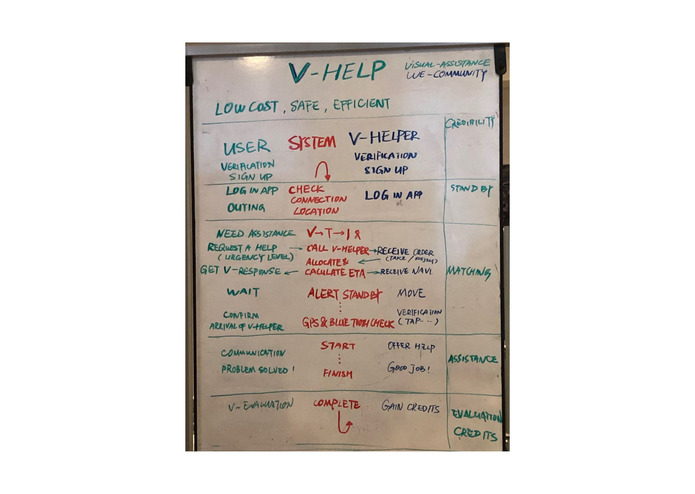 V-HELP
VISUAL-ASSISTANCE
LIVE-COMMUNITY
LOW COST, SAFE, EFFICIENT
CREDIBILITY
USER SYSTEM V-HELPER
VERIFICATION
SIGN UP
VERIFICATION
SIGN UP
LOG IN APP CHECK LOG IN APP STAND BY
OUTING CONNECTION
LOCATION
NEED ASSISTANCE V→T→1 &
REQUEST A HELP → CALL V-HELPER → RECEIVE ORDER
(URGENCY LEVEL) ALLOCATE & ←
GET V-RESPONSE ← CALULATE ETA → RECEIVE NAVI MATCHING
WAIT ALERT STANDBY MOVE
CONFIRM VERIFICATION
ARRIVAL OF V-HELPER GPS & BLUETOOTH CHECK (TAP...)
START OFFER HELP
COMMUNICATION ASSISTANCE
PROBLEM SOLVED! FINISH GOOD JOB!
V-EVALUATION COMPLETE GAIN CREDITS EVALUATION
CREDITS